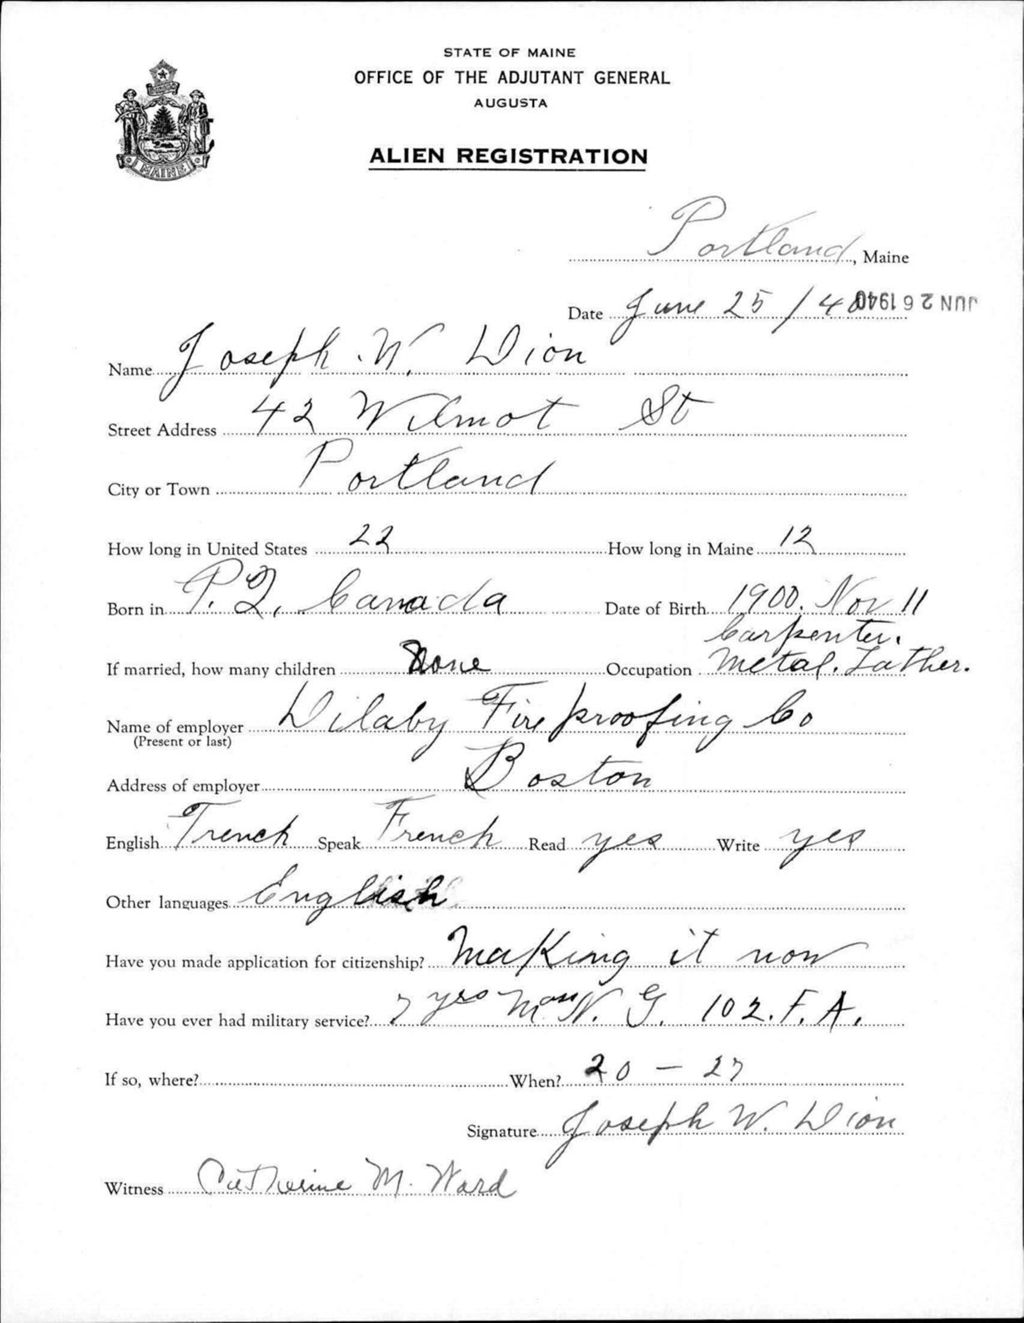 STATE OF MAINE
OFFICE OF THE ADJUTANT GENERAL
AUGUSTA
ALIEN REGISTRATION
MAINE
Portland, Maine
Date June 25 / 40 JUN 26 1940
Name Joseph W. Dion
Street Address 42 Wilmot St
City or Town Portland
How long in United States 22 How long in Maine 12
Born in P. Q. Canada Date of Birth 1900. Nov 11
Carpenter.
If married, how many children None Occupation Metal. Lather.
Name of employer Dilaby Fireproofing Co
(Present or last)
Address of employer Boston
English French Speak French Read yes Write yes
Other languages English
Have you made application for citizenship? Making it now
Have you ever had military service? 7 yrs Mass N. G. 102. F. A.
If so, where? When? 20 - 27
Signature Joseph W. Dion
Witness Catherine M. Ward